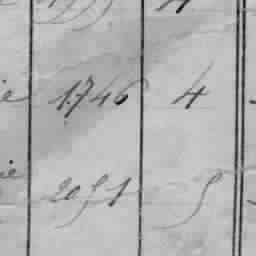 ie 1746 4
ie 2051 5